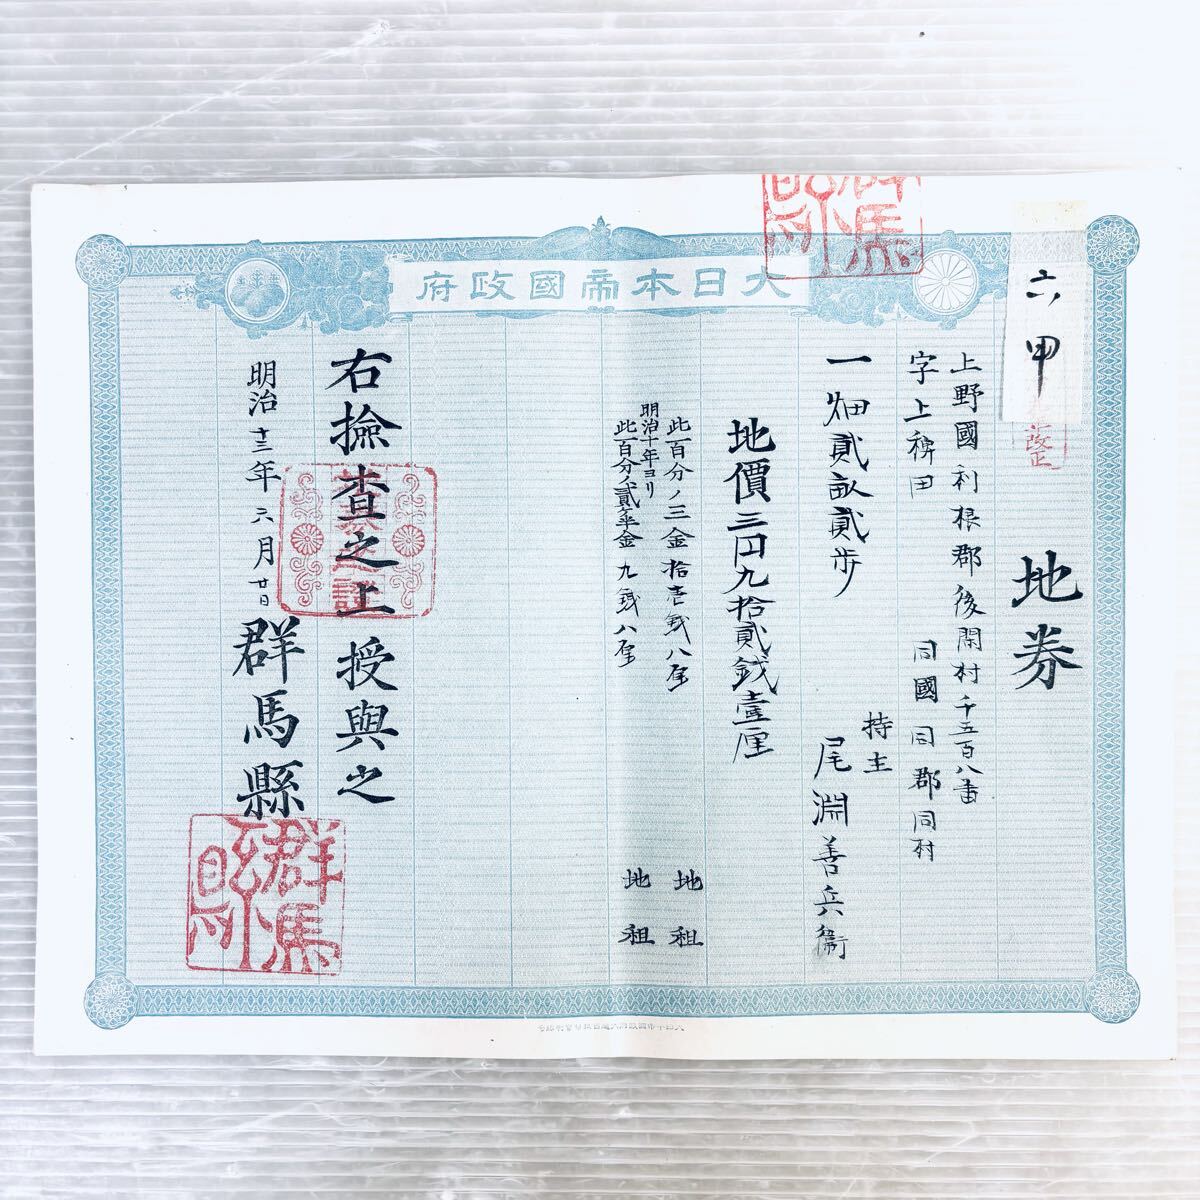 大日本帝國政府
六甲
改正
地券
上野國利根郡後閑村千五百八番
字上稗田
同國同郡同村
持主
尾淵善兵衞
一畑貳畝貳歩
地價三円九拾貳銭壹厘
此百分ノ三金拾壱銭八厘
地租
明治十年ヨリ
此百分ノ貳半金九銭八厘
地租
右撿査之上授與之
明治十三年六月廿日
群馬縣
群馬縣
群馬